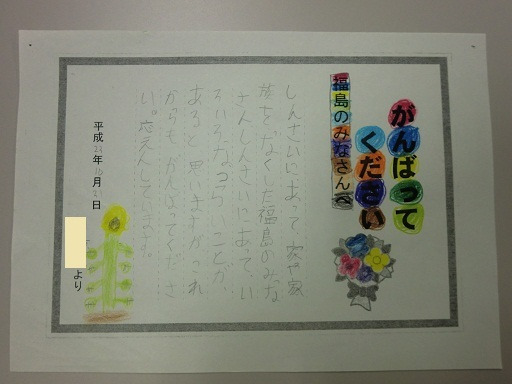 がんばって
ください
福島のみなさんへ
しんさいにあって、家や家
族をなくした福島のみな
さんしんさいにあってい
ろいろなつらいことが、
あると思いますが、これ
からも、がんばってくださ
い。応えんしています。
平成23年10月21日
より